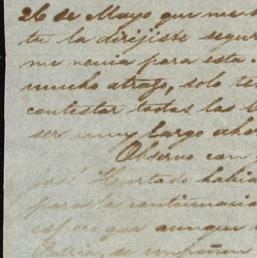 26 de Mayo que me
tu la dirijiste segun
me venia para esta
mucho atrajo, solo te
contestar todas las
ser muy largo aho
Observo con
José Hurtado habia
para la continuacio
espero que aunque
Patria, se empeñen